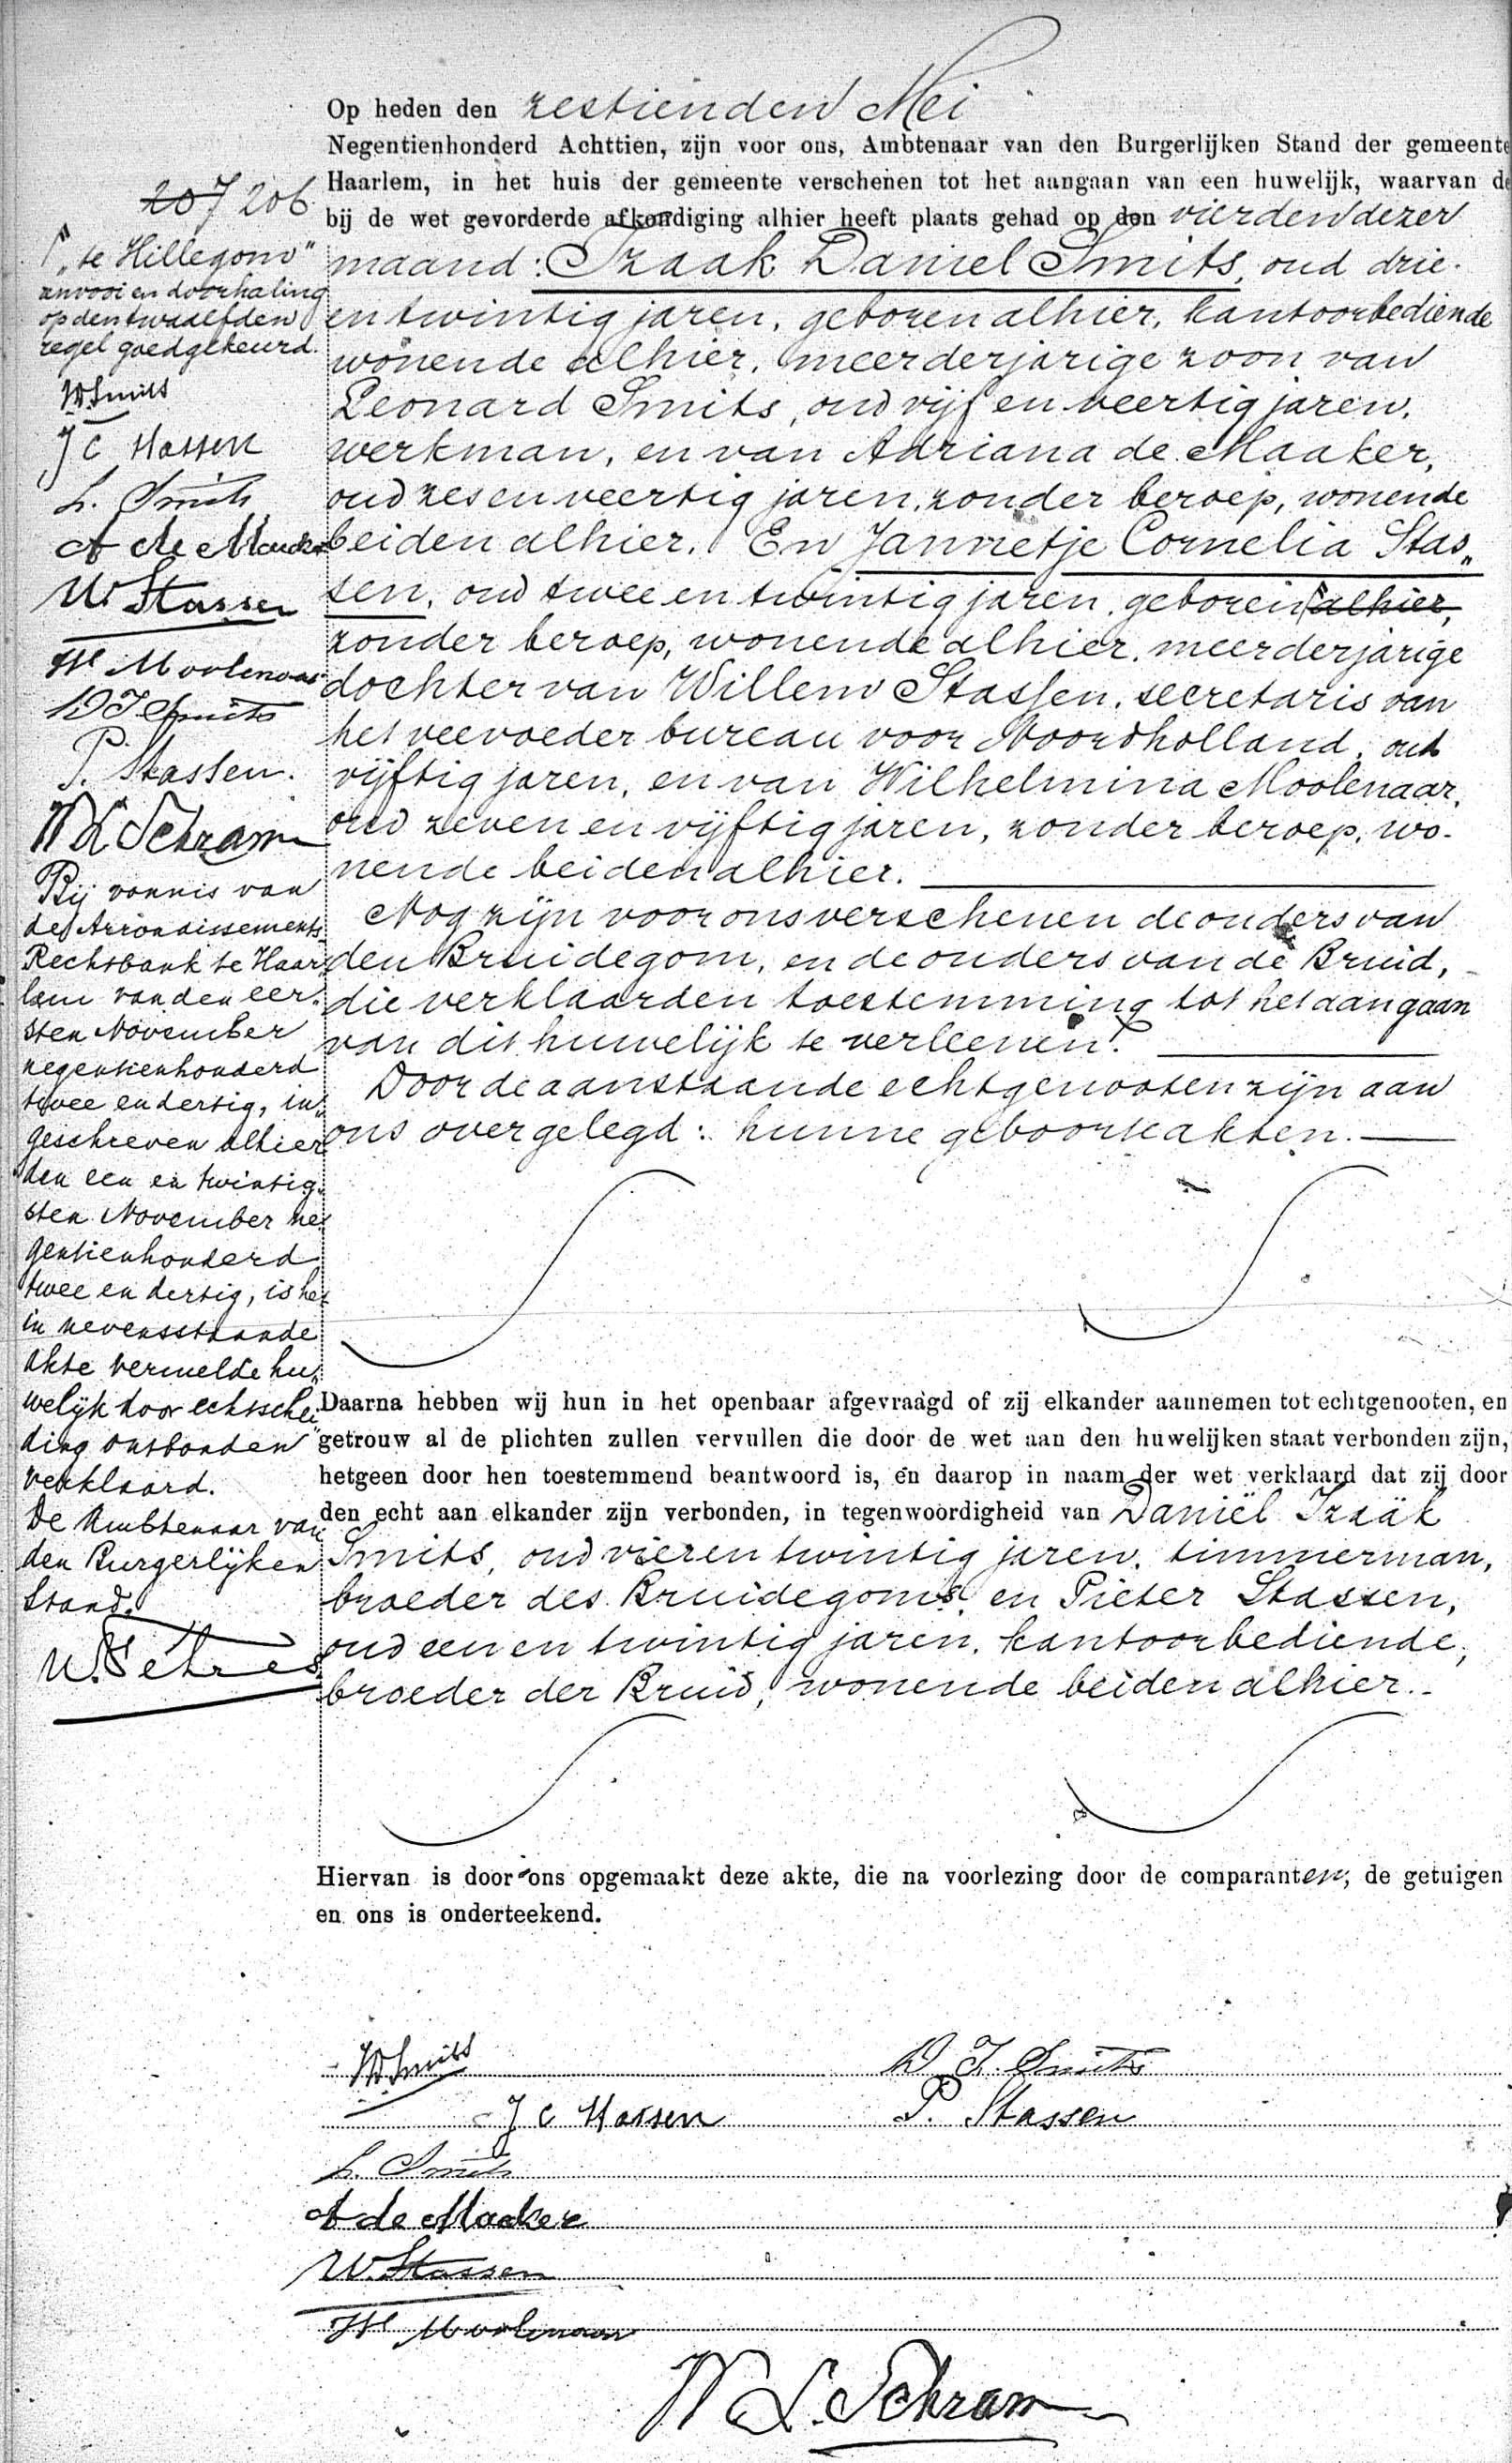 Op heden den zestienden Mei
Negentienhonderd Achttien, zijn voor ons, Ambtenaar van den Burgerlijken Stand der gemeente
Haarlem, in het huis der gemeente verschenen tot het aangaan van een huwelijk, waarvan de
bij de wet gevorderde afkondiging alhier heeft plaats gehad op den vierden dezer
maand: Izaak Daniel Smits, oud drie-
en twintig jaren, geboren alhier, kantoorbediende
wonende alhier, meerderjarige zoon van
Leonard Smits, oud vijf en veertig jaren,
werkman, en van Adriana de Maaker,
oud zes en veertig jaren, zonder beroep, wonende
beiden alhier. En Jannetje Cornelia Stas„
sen, oud twee en twintig jaren, geboren alhier,
zonder beroep, wonende alhier, meerderjarige
dochter van Willem Stassen, secretaris van
het veevoeder bureau voor Noordholland, oud
vijftig jaren, en van Wilhelmina Moolenaar,
oud zeven en vijftig jaren, zonder beroep, wo-
nende beiden alhier.
Nog zijn voor ons verschenen de ouders van
den Bruidegom, en de ouders van de Bruid,
die verklaarden toestemming tot het aangaan
van dit huwelijk te verleenen.
Door de aanstaande echtgenooten zijn aan
ons overgelegd: hunne geboorteakten.
Daarna hebben wij hun in het openbaar afgevraagd of zij elkander aannemen tot echtgenooten, en
getrouw al de plichten zullen vervullen die door de wet aan den huwelijken staat verbonden zijn,
hetgeen door hen toestemmend beantwoord is, en daarop in naam der wet verklaard dat zij door
den echt aan elkander zijn verbonden, in tegenwoordigheid van Daniël Izaäk
Smits, oud vier en twintig jaren, timmerman,
broeder des Bruidegoms, en Pieter Stassen,
oud een en twintig jaren, kantoorbediende,
broeder der Bruid, wonende beiden alhier.
Hiervan is door ons opgemaakt deze akte, die na voorlezing door de comparanten, de getuigen
en ons is onderteekend.
207 206
„te Hillegom"
renvooi en doorhaling
op den twaalfden
regel goedgekeurd.
ID Smits
J C Stassen
L. Smits
A de Maaker
W. Stassen
W Moolenaar
D I Smits
P. Stassen.
W L Schram
Bij vonnis van
de Arrondissements-
Rechtbank te Haar„
lem van den eer„
sten November
negentienhonderd
twee en dertig, in„
geschreven alhier
den een en twintig„
sten November ne„
gentienhonderd
twee en dertig, is het
in nevensstaande
akte vermelde hu„
welijk door echtschei„
ding ontbonden
verklaard.
De Ambtenaar van
den Burgerlijken
Stand.
ID Smits
D. I. Smits
J C Stassen
P. Stassen
L. Smits
A de Maaker
W. Stassen
W Moolenaar
W L. Schram